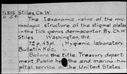 Stiles, Ch. W.
The taxonomic value of the mi-
croscopic structure of the stigmal plates
in the tick genus dermacentor. By Ch. W.
Stiles. Washington,
72 p. 43 pl. (Hygienic laboratory.
Bulletin
Treasury depart-
ment Public health and marine-hos-
pital service of the United States.